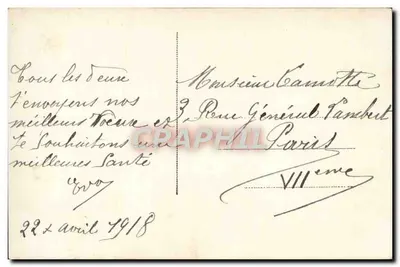 Tous les deux
t'envoyons nos
meilleurs Vœux et
te souhaitons une
meilleures Santé
22 avril 1918
Monsieur Lamotte
3, Rue Général Lambert
Paris
VIIeme
CPAPHIL